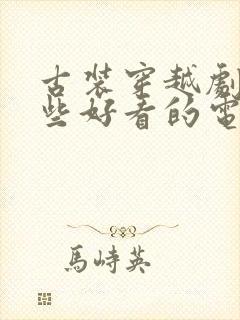 古裝穿越劇
些好看的電
馬峙英